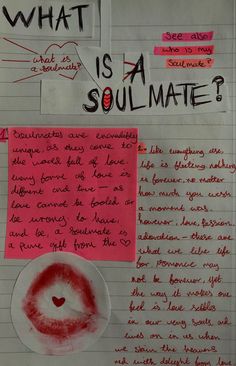 WHAT
what is
a soulmate?
See also
who is my
Soulmate?
IS A
SOULMATE?
1. Soulmates are incredibly
unique, as they come to
the world full of love.
Every form of love is
different and true — as
love cannot be fooled or
be wrong to have,
and be, a soulmate is
a pure gift from the ♡
like everything else,
life is fleeting, nothing
is forever, no matter
how much you wish
a moment was.
however, love, passion,
adoration – these are
what we like life
for. Romance may
not be forever, yet
the way it makes one
feel is love
in our very souls and
lives on in us when
we stain the heavens
red with delight from love